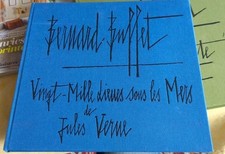 Bernard Buffet
Vingt-Mille Lieues sous les Mers
de
Jules Verne